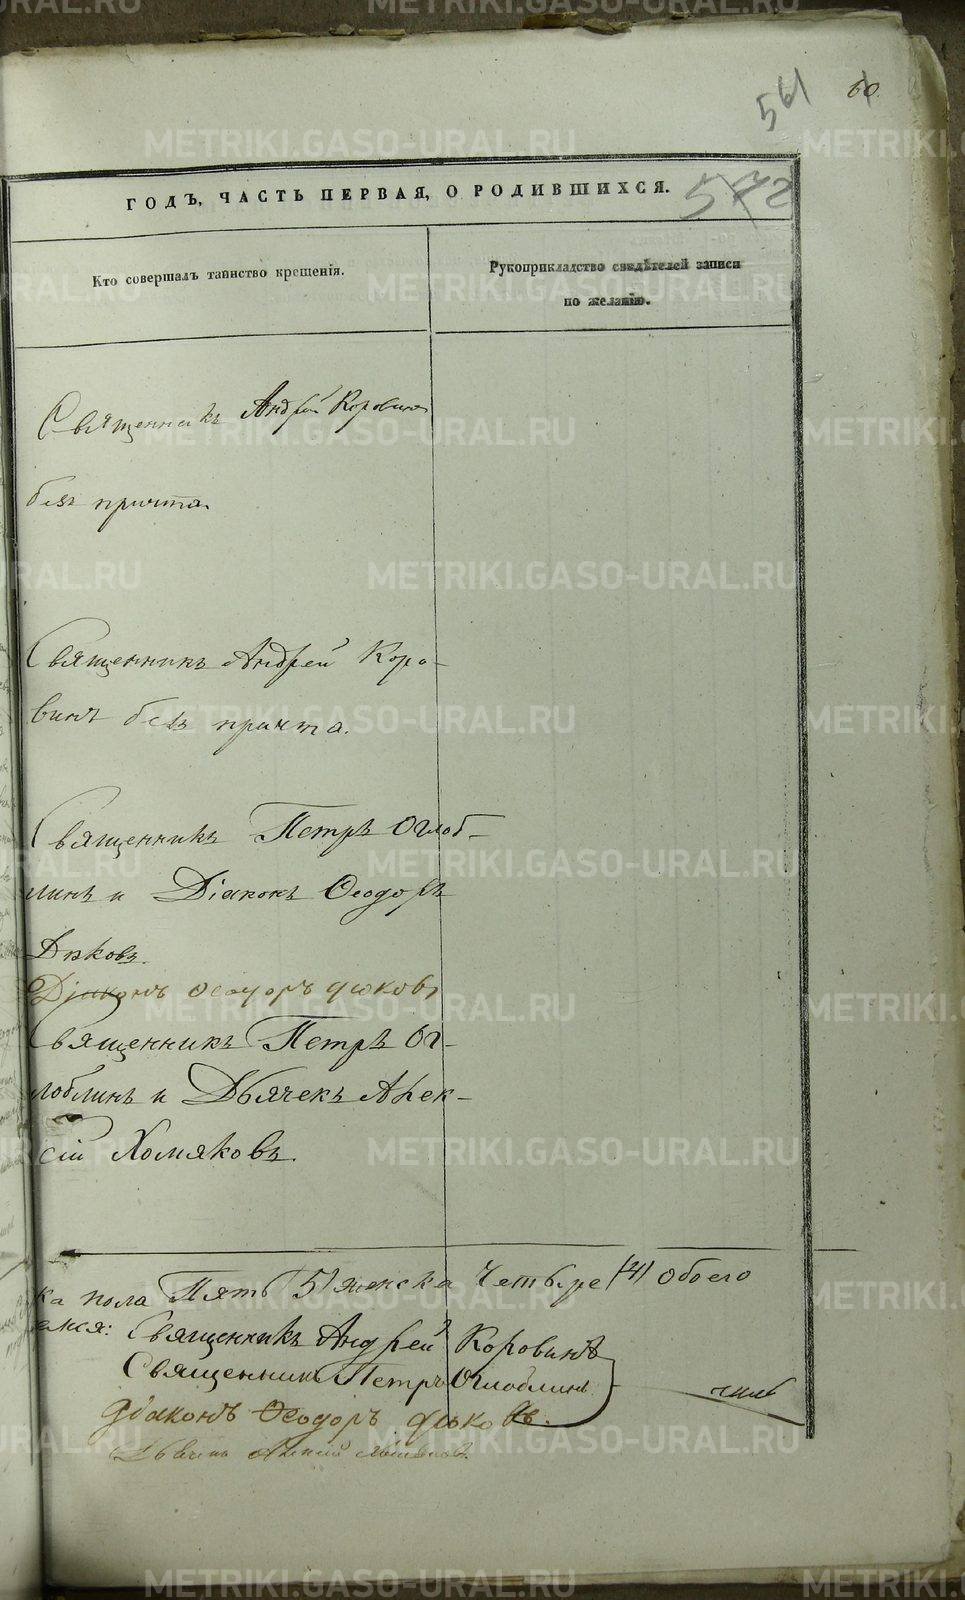 561 60
ГОДЪ, ЧАСТЬ ПЕРВАЯ, О РОДИВШИХСЯ. 572
Кто совершалъ таинство крещенія.
Рукоприкладство свидѣтелей записи
по желанію.
Священникъ Андрей Коровинъ
безъ причта.
Священникъ Андрей Коро-
винъ безъ причта.
Священникъ Петръ Оглоб-
линъ и Діаконъ Ѳеодоръ
Дьковъ.
Діаконъ Ѳеодоръ
Священникъ Петръ Ог-
лоблинъ и Дьячекъ Алек-
сій Хомяковъ.
ка пола Пять 5) женска Четыре (4) обоего
Священникъ Андрей Коровинъ
Священникъ Петръ Оглоблинъ
Діаконъ Ѳеодоръ
Дьячекъ Алексій
METRIKI.GASO-URAL.RU